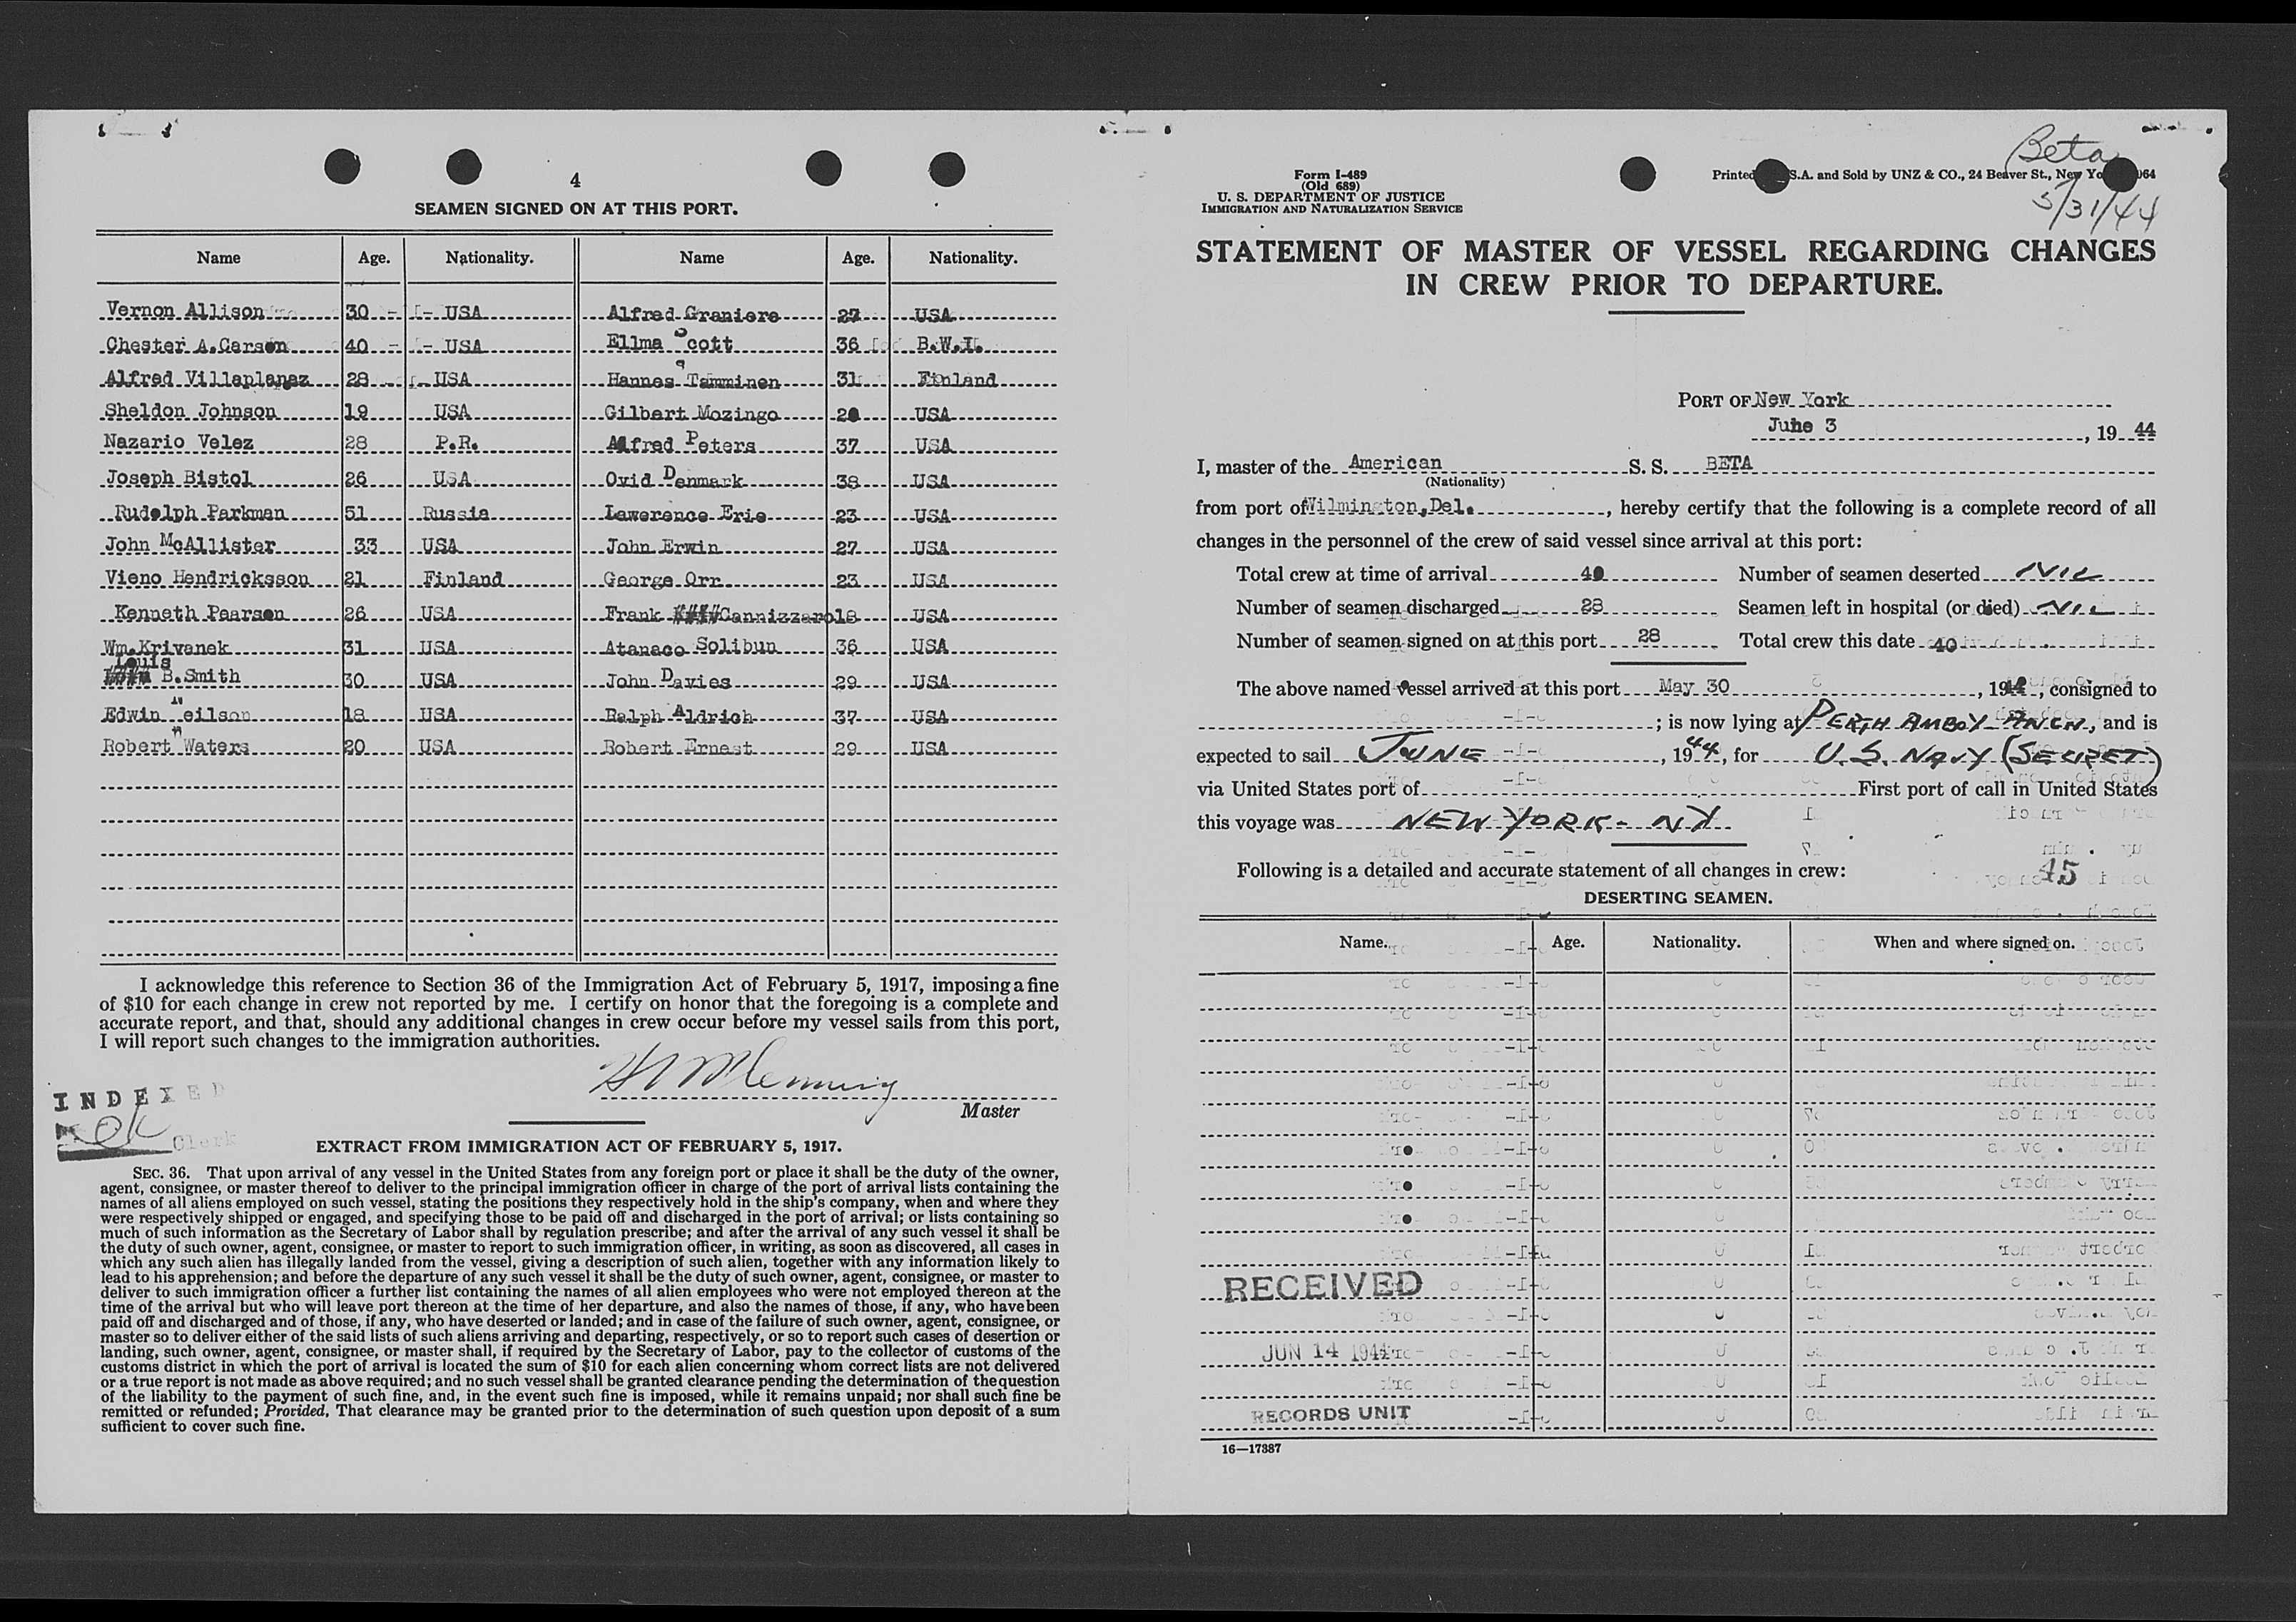 4
SEAMEN SIGNED ON AT THIS PORT.
Name Age. Nationality. Name Age. Nationality.
Vernon Allison 30 USA Alfred Graniere 27 USA
Chester A. Carson 40 USA Ellma Scott 36 B.W.I.
Alfred Villaplanez 28 USA Hannes Tamminen 31 Finland
Sheldon Johnson 19 USA Gilbert Mozingo USA
Nazario Velez 28 P.R. Alfred Peters 37 USA
Joseph Bistol 26 USA Ovid Denmark 38 USA
Rudolph Parkman 51 Russia Lawerence Erie 23 USA
John McAllister 33 USA John Erwin 27 USA
Vieno Hendricksson 21 Finland George Orr 23 USA
Kenneth Pearson 26 USA Frank Cannizzaro 18 USA
Wm. Krivanek 31 USA Atanaco Solibun 36 USA
Louis B. Smith 30 USA John Davies 29 USA
Edwin Neilson 18 USA Ralph Aldrich 37 USA
Robert Waters 20 USA Robert Ernest 29 USA
I acknowledge this reference to Section 36 of the Immigration Act of February 5, 1917, imposing a fine
of $10 for each change in crew not reported by me. I certify on honor that the foregoing is a complete and
accurate report, and that, should any additional changes in crew occur before my vessel sails from this port,
I will report such changes to the immigration authorities.
Master
INDEXED
Clerk
EXTRACT FROM IMMIGRATION ACT OF FEBRUARY 5, 1917.
SEC. 36. That upon arrival of any vessel in the United States from any foreign port or place it shall be the duty of the owner,
agent, consignee, or master thereof to deliver to the principal immigration officer in charge of the port of arrival lists containing the
names of all aliens employed on such vessel, stating the positions they respectively hold in the ship's company, when and where they
were respectively shipped or engaged, and specifying those to be paid off and discharged in the port of arrival; or lists containing so
much of such information as the Secretary of Labor shall by regulation prescribe; and after the arrival of any such vessel it shall be
the duty of such owner, agent, consignee, or master to report to such immigration officer, in writing, as soon as discovered, all cases in
which any such alien has illegally landed from the vessel, giving a description of such alien, together with any information likely to
lead to his apprehension; and before the departure of any such vessel it shall be the duty of such owner, agent, consignee, or master to
deliver to such immigration officer a further list containing the names of all alien employees who were not employed thereon at the
time of the arrival but who will leave port thereon at the time of her departure, and also the names of those, if any, who have been
paid off and discharged and of those, if any, who have deserted or landed; and in case of the failure of such owner, agent, consignee, or
master so to deliver either of the said lists of such aliens arriving and departing, respectively, or so to report such cases of desertion or
landing, such owner, agent, consignee, or master shall, if required by the Secretary of Labor, pay to the collector of customs of the
customs district in which the port of arrival is located the sum of $10 for each alien concerning whom correct lists are not delivered
or a true report is not made as above required; and no such vessel shall be granted clearance pending the determination of the question
of the liability to the payment of such fine, and, in the event such fine is imposed, while it remains unpaid; nor shall such fine be
remitted or refunded; Provided, That clearance may be granted prior to the determination of such question upon deposit of a sum
sufficient to cover such fine.
Beta
5/31/44
Form I-489
(Old 689)
U. S. DEPARTMENT OF JUSTICE
IMMIGRATION AND NATURALIZATION SERVICE
Printed S.A. and Sold by UNZ & CO., 24 Beaver St., New Yo 064
STATEMENT OF MASTER OF VESSEL REGARDING CHANGES
IN CREW PRIOR TO DEPARTURE.
PORT OF New York
June 3, 19 44
I, master of the American S. S. BETA
(Nationality)
from port of Wilmington, Del., hereby certify that the following is a complete record of all
changes in the personnel of the crew of said vessel since arrival at this port:
Total crew at time of arrival 40 Number of seamen deserted NIL
Number of seamen discharged 28 Seamen left in hospital (or died) NIL
Number of seamen signed on at this port 28 Total crew this date 40
The above named vessel arrived at this port May 30, 19, consigned to
; is now lying at PERTH AMBOY ANCH, and is
expected to sail JUNE, 1944, for U.S. NAVY (SECRET)
via United States port of First port of call in United States
this voyage was NEW YORK - NY
Following is a detailed and accurate statement of all changes in crew:
45
DESERTING SEAMEN.
Name. Age. Nationality. When and where signed on.
RECEIVED
JUN 14 1944
RECORDS UNIT
16—17387